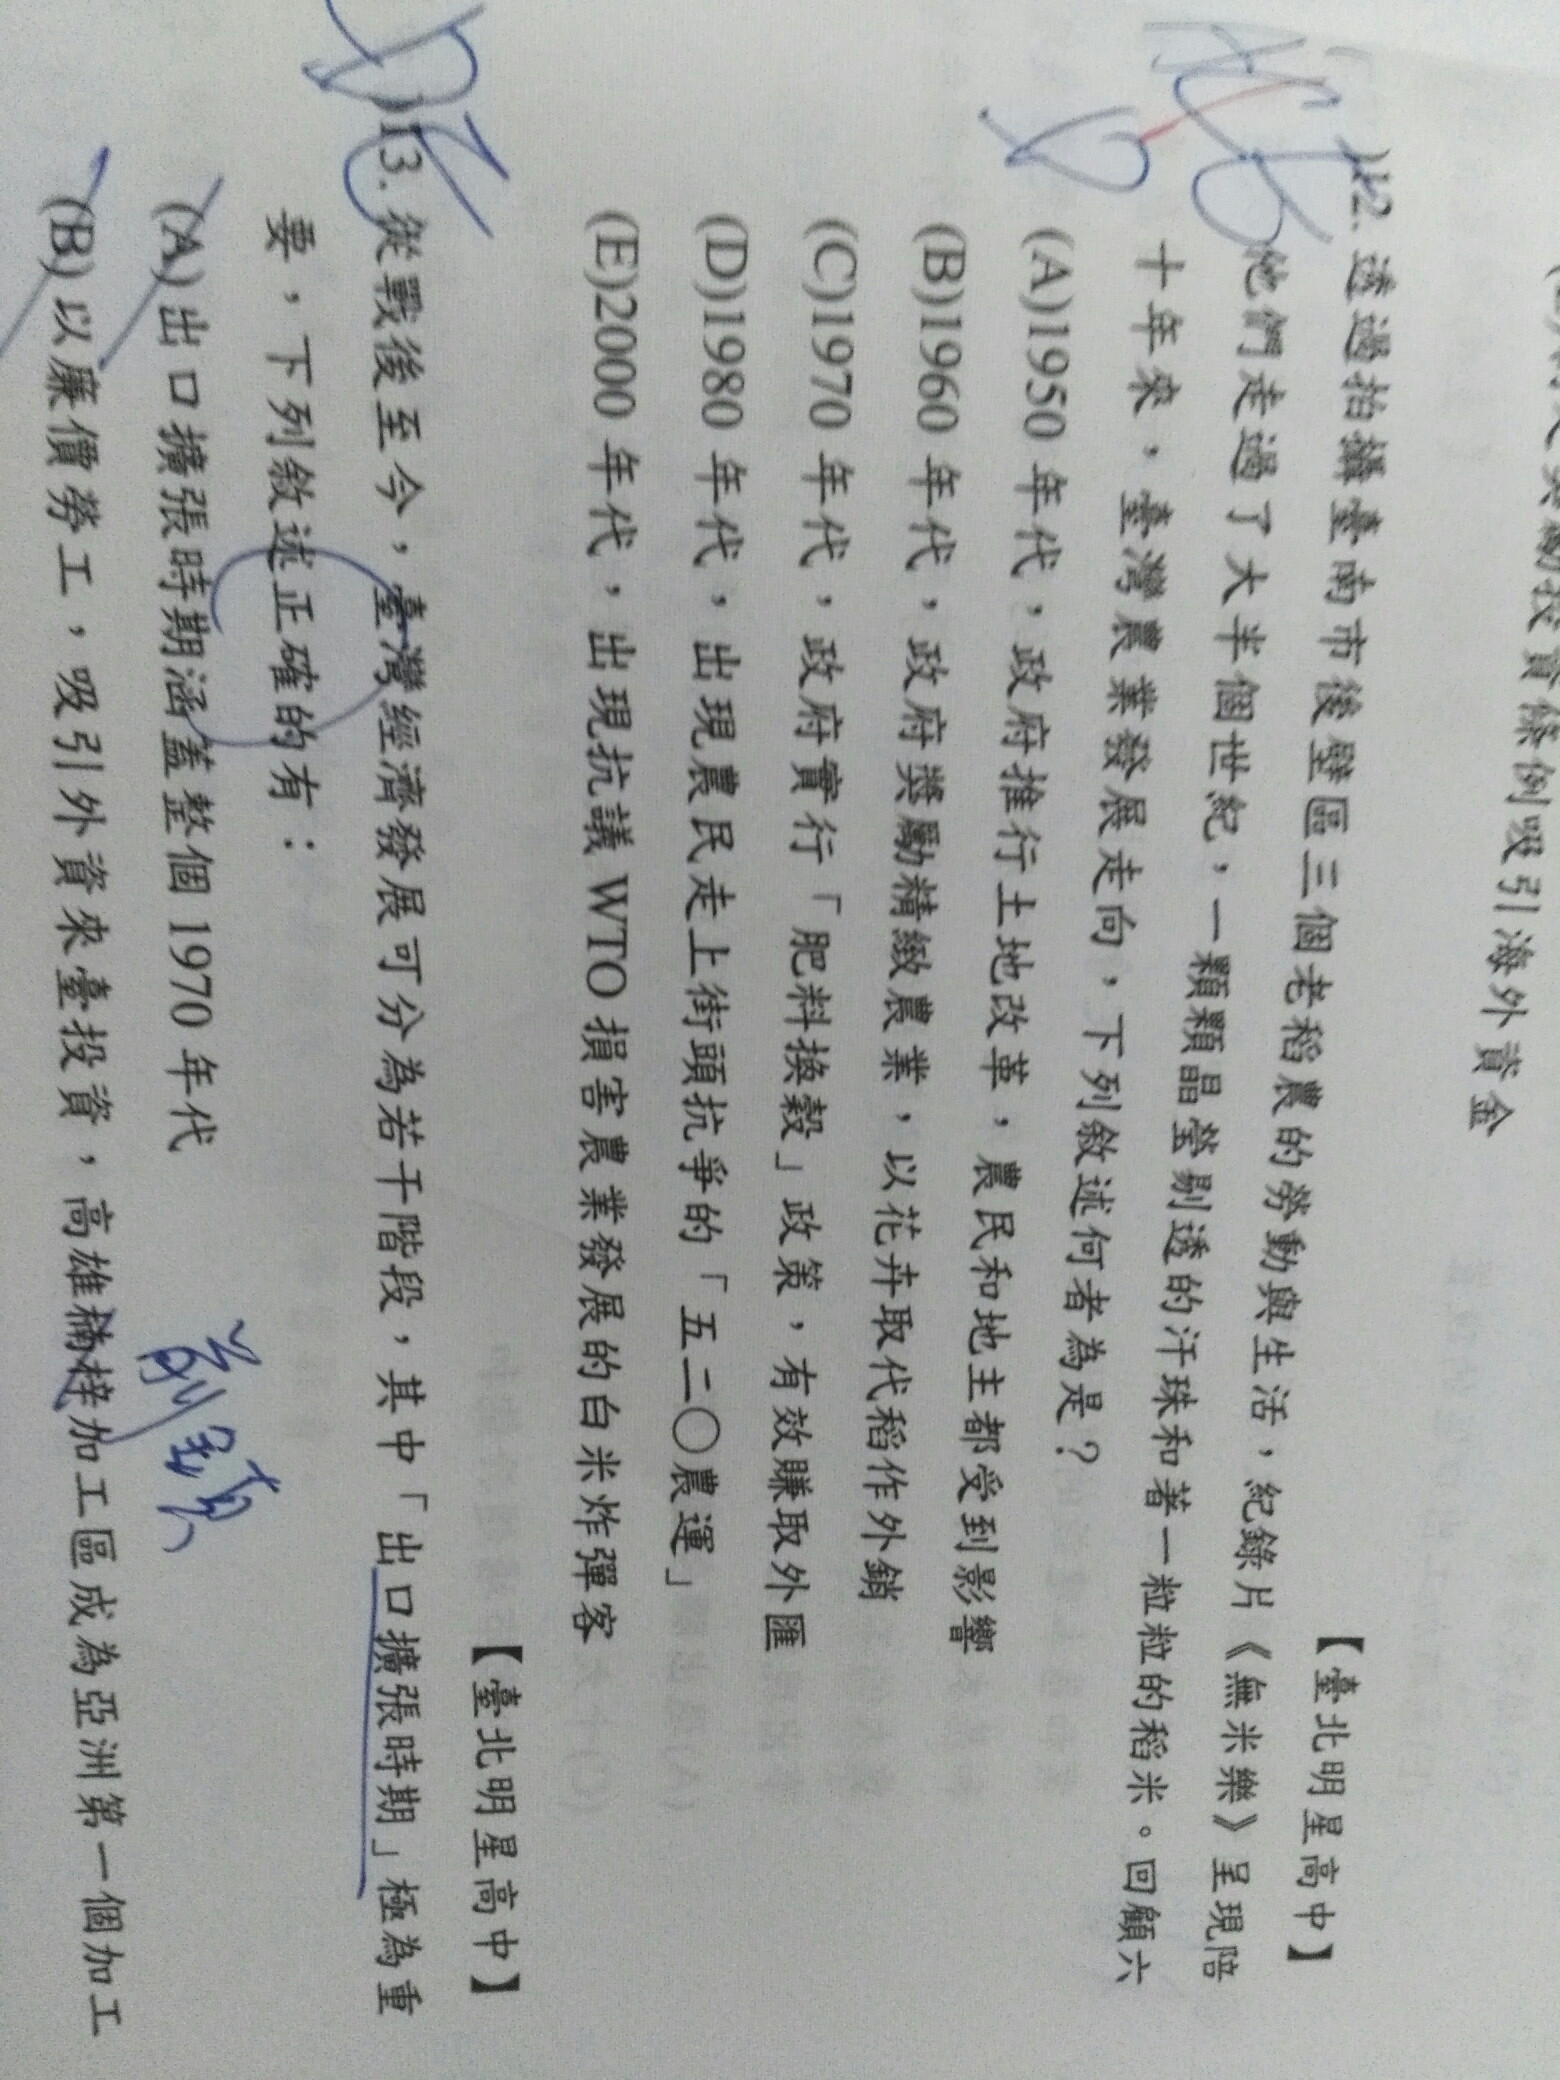 投資條例吸引海外資金
【臺北明星高中】
)12. 透過拍攝臺南市後壁區三個老稻農的勞動與生活，紀錄片《無米樂》呈現陪
他們走過了大半個世紀，一顆顆晶瑩剔透的汗珠和著一粒粒的稻米。回顧六
十年來，臺灣農業發展走向，下列敘述何者為是？
(A)1950 年代，政府推行土地改革，農民和地主都受到影響
(B)1960 年代，政府獎勵精緻農業，以花卉取代稻作外銷
(C)1970 年代，政府實行「肥料換穀」政策，有效賺取外匯
(D)1980 年代，出現農民走上街頭抗爭的「五二〇農運」
(E)2000 年代，出現抗議 WTO 損害農業發展的白米炸彈客
【臺北明星高中】
)13. 從戰後至今，臺灣經濟發展可分為若干階段，其中「出口擴張時期」極為重
要，下列敘述正確的有：
(A)出口擴張時期涵蓋整個 1970 年代
(B)以廉價勞工，吸引外資來臺投資，高雄楠梓加工區成為亞洲第一個加工